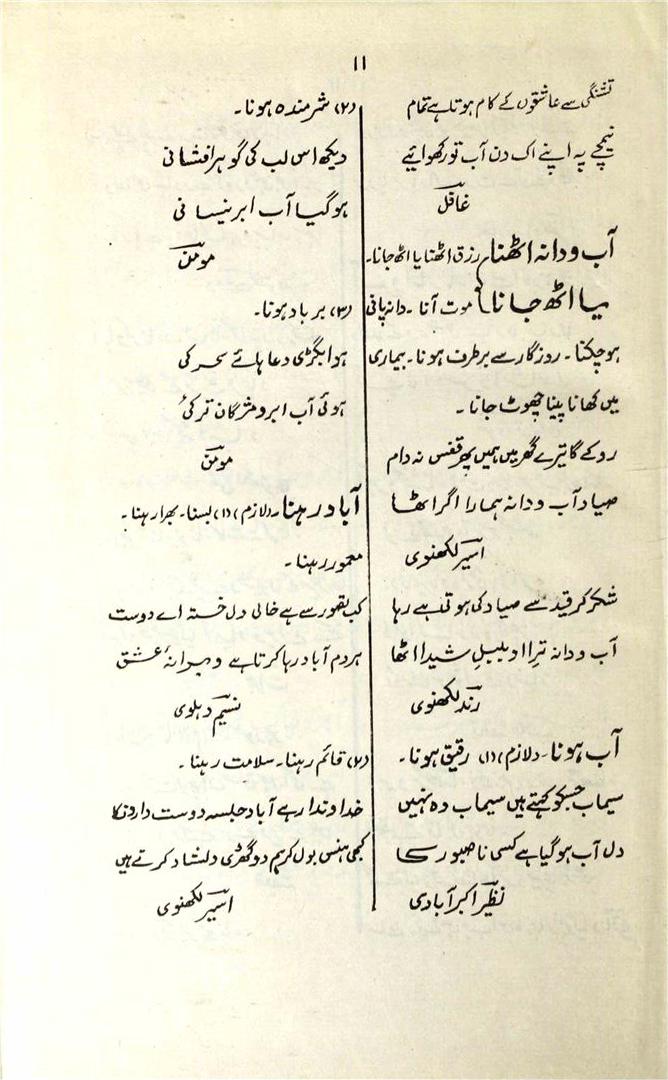 ۱۱
تشنگی سے عاشقوں کے کام ہوتا ہے تمام
نیمچے پہ اپنے اک دن آب تو رکھوائیے
غافل
آب و دانہ اٹھنا رزق اٹھنا یا اٹھ جانا۔
یا اٹھ جانا موت آنا۔ دانہ پانی
ہو چکنا۔ روزگار سے برطرف ہونا۔ بیماری
میں کھانا پینا چھوٹ جانا۔
روکے گا تیرے گھر میں ہمیں پھر قفس نہ دام
صیاد آب و دانہ ہمارا اگر اٹھا
اسیر لکھنوی
شکر کر قید سے صیاد کی ہوتی ہے رہا
آب و دانہ ترا او بلبلِ شیدا اٹھا
رند لکھنوی
آب ہونا۔ (لازم) (۱) رقیق ہونا۔
سیماب جسکو کہتے ہیں سیماب وہ نہیں
دل آب ہو گیا ہے کسی ناصبور کا
نظیر اکبر آبادی
(۲) شرمندہ ہونا۔
دیکھ اس لب کی گوہر افشانی
ہو گیا آب ابر نیسانی
مومن
(۳) برباد ہونا۔
ہوا بگڑی دعا ہائے سحر کی
ہوئی آب ابرو مژگان تر کی
مومن
آباد رہنا۔ (لازم) (۱) بسنا۔ بھرا رہنا۔
معمور رہنا۔
کب تصور سے ہے خالی دل خستہ اے دوست
ہر دم آباد رہا کرتا ہے ویرانۂ عشق
نسیم دہلوی
(۲) قائم رہنا۔ سلامت رہنا۔
خداوندا رہے آباد جلسہ دوست داروں کا
کبھی ہنس بول کر ہم دو گھڑی دلشاد کرتے ہیں
اسیر لکھنوی